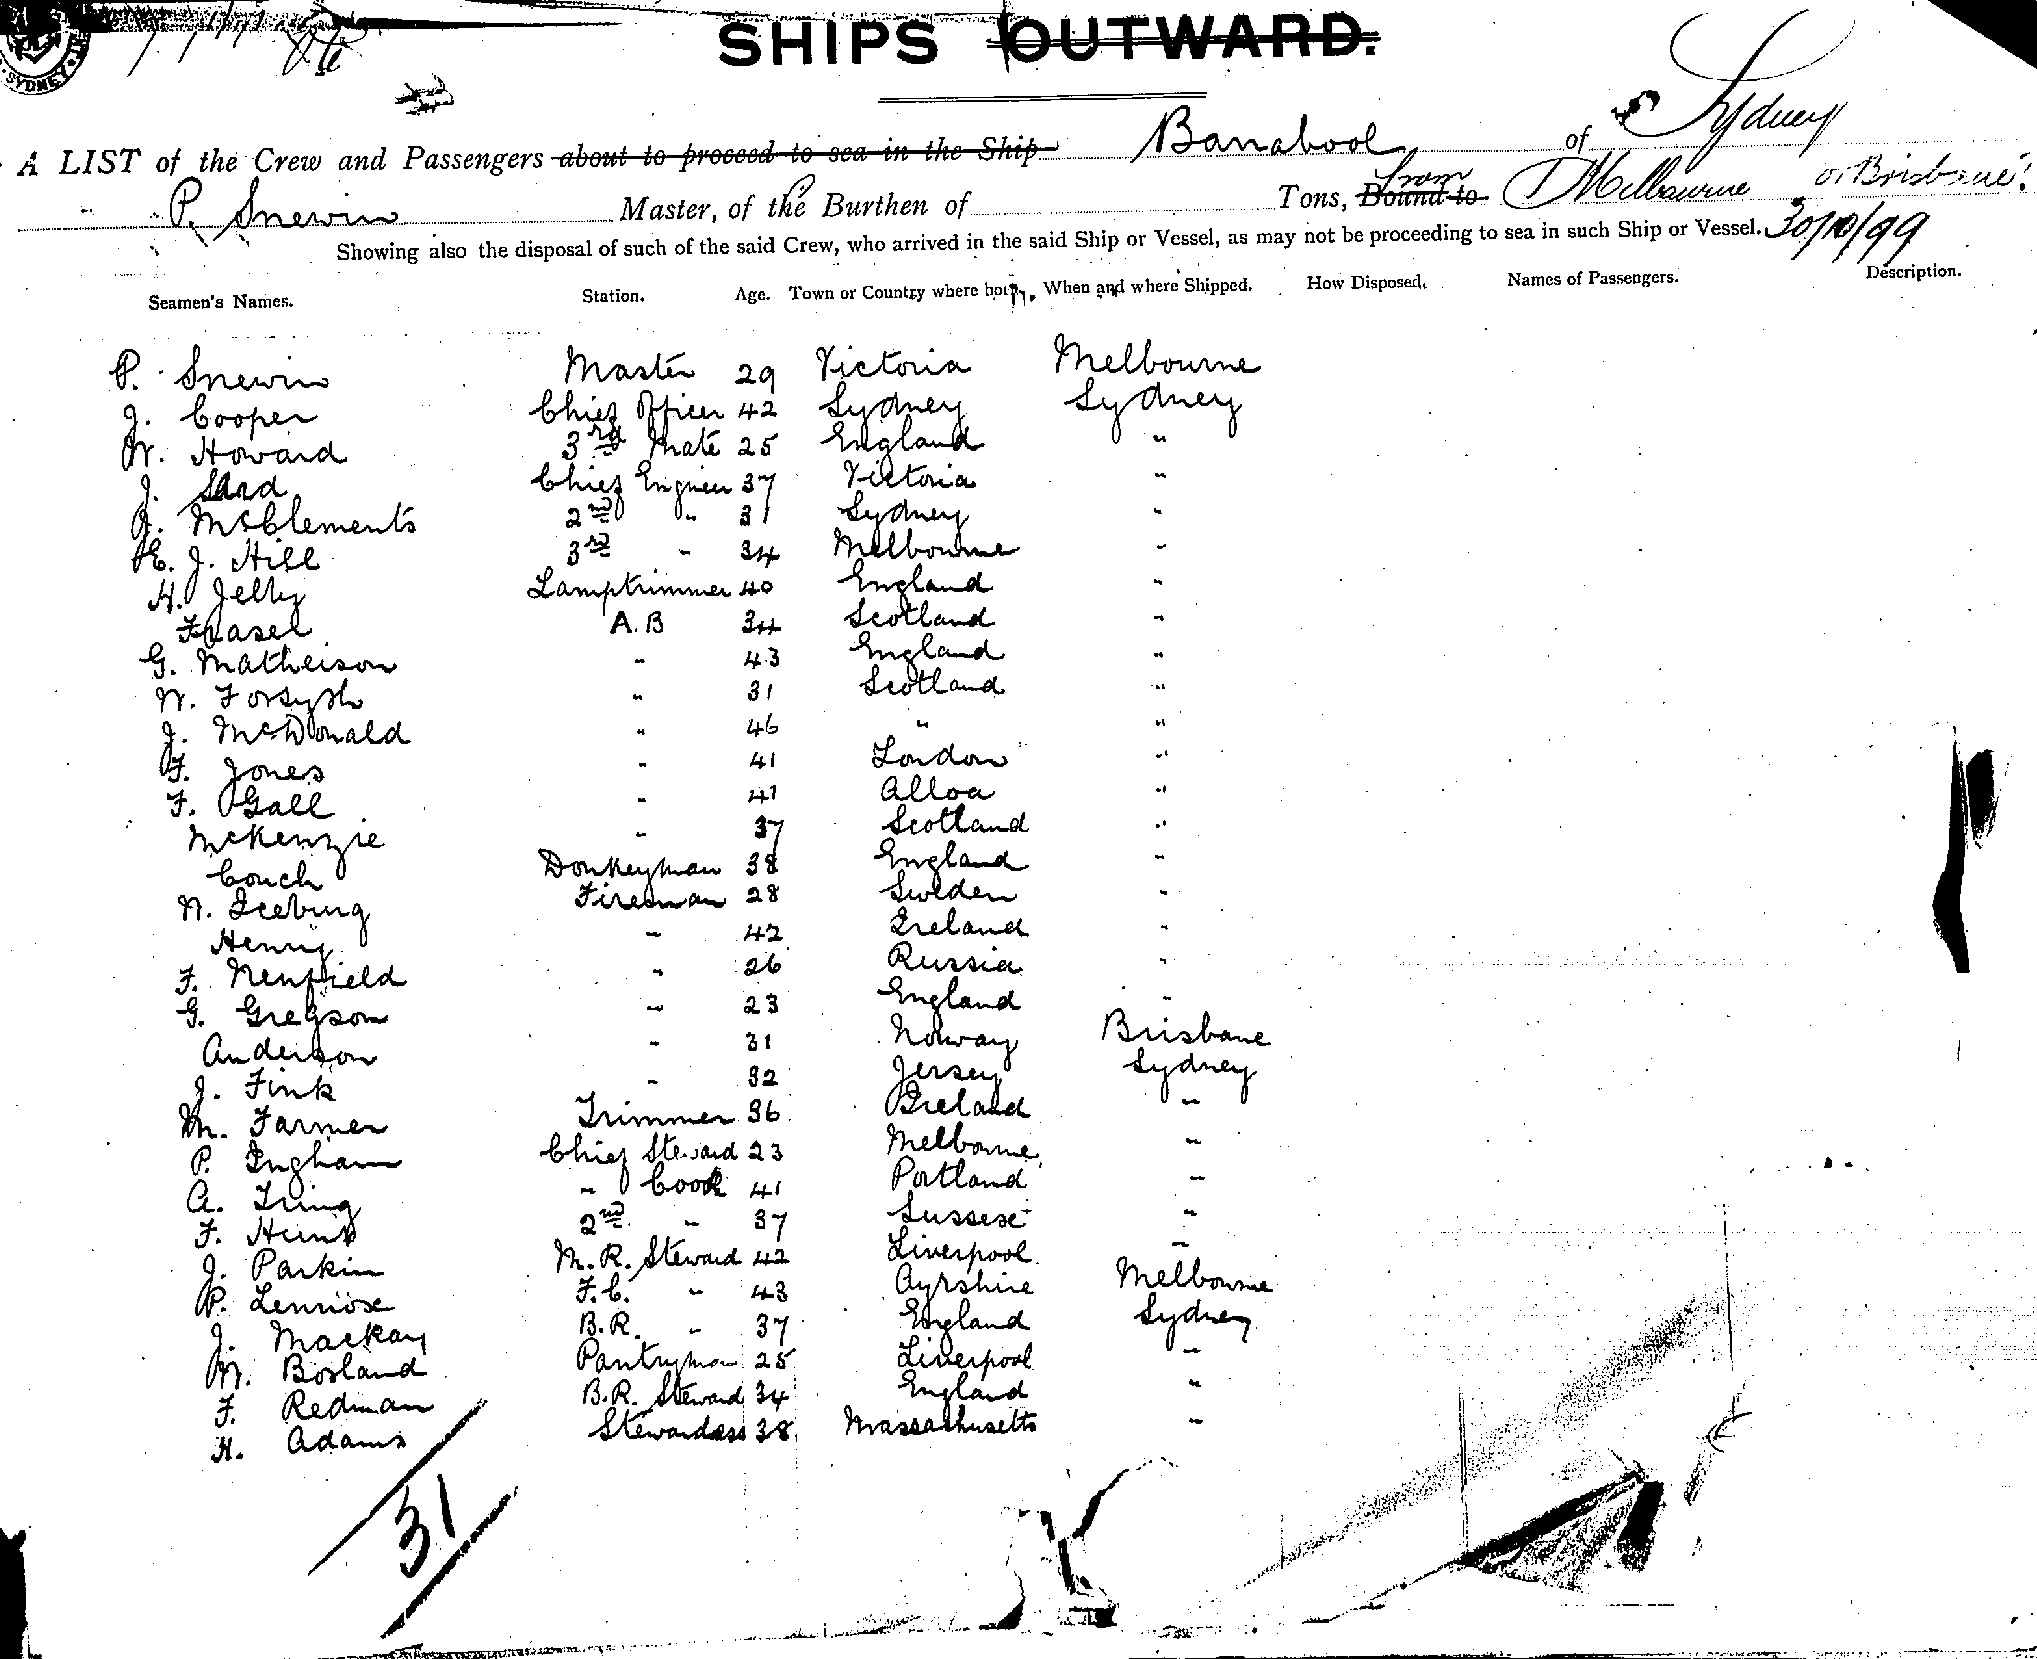 SYDNEY
SHIPS OUTWARD.
A LIST of the Crew and Passengers about to proceed to sea in the Ship Barrabool of Sydney
P. Snewin Master, of the Burthen of Tons, Bound to from Melbourne or Brisbane?
Showing also the disposal of such of the said Crew, who arrived in the said Ship or Vessel, as may not be proceeding to sea in such Ship or Vessel. 30/10/99
Seamen's Names. Station. Age. Town or Country where born, When and where Shipped. How Disposed. Names of Passengers. Description.
P. Snewin Master 29 Victoria Melbourne
J. Cooper Chief Officer 42 Sydney Sydney
W. Howard 3rd Mate 25 England "
J. Chief Engineer 37 Victoria "
McClements 2nd " 31 Sydney "
H. J. Hill 3rd " 34 Melbourne "
H. Jelly Lamptrimmer 40 England "
Fraser A.B 34 Scotland "
G. Matheison " 43 England "
W. Forsyth " 31 Scotland "
J. McDonald " 46 " "
F. Jones " 41 London "
F. Gall " 41 Alloa "
McKenzie " 37 Scotland "
Couch Donkeyman 38 England "
N. Iceburg Fireman 28 Sweden "
Henry " 42 Ireland "
F. Nenfield " 26 Russia "
G. Gregson " 23 England "
Anderson " 31 Norway Brisbane
J. Fink " 32 Jersey Sydney
M. Farmer Trimmer 36 Ireland "
P. Ingham Chief Steward 23 Melbourne "
A. " Cook 41 Portland "
F. Hunt 2nd " 37 Sussex "
J. Parkin M.R. Steward 42 Liverpool "
P. Lennox F.C. " 43 Ayrshire Melbourne
J. Mackay B.R. " 37 England Sydney
W. Borland Pantryman 25 Liverpool "
F. Redman B.R. Steward 34 England "
H. Adams Stewardess 38 Massachusetts "
31